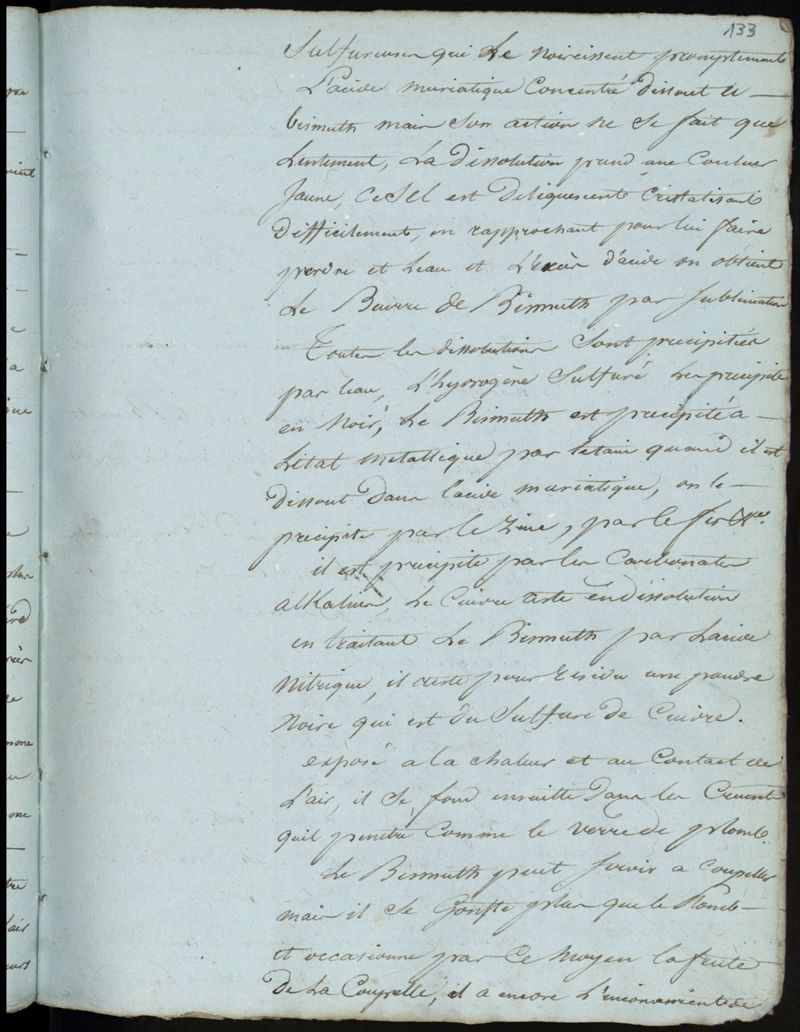 133
Sulfureuses qui Le noircissent promptement
L'acide muriatique Concentré dissout le
bismuth mais Son action ne Se fait que
Lentement, La Dissolution prend une Couleur
Jaune, Ce Sel est Deliquescent Cristalisant
Difficilement, en rapprochant pour lui faire
perdre et L'eau et L'excès d'acide on obtient
Le Beurre de Bismuth par Sublimation
Toutes les dissolutions Sont precipitées
par l'eau, L'hydrogène Sulfuré Les precipite
en Noir, Le Bismuth est precipité a
L'etat metallique par letain quand il est
Dissout Dans l'acide muriatique, on le
precipite par le Zinc, par le fer &ca.
il est precipité par les Carbonates
alKalins, Le Cuivre reste en dissolution
en traitant Le Bismuth par L'acide
Nitrique, il reste pour residu une poudre
Noire qui est du Sulfure de Cuivre.
exposé a la chaleur et au Contact de
L'air, il Se fond ensuitte Dans les Creusets
quil penetre Comme le verre de plomb.
Le Bismuth peut Servir a Coupeller
mais il Se Gonfle plus que le Plomb
et occasionne par Ce Moyen la fente
De La Coupelle, il a encore L'inconvenient de